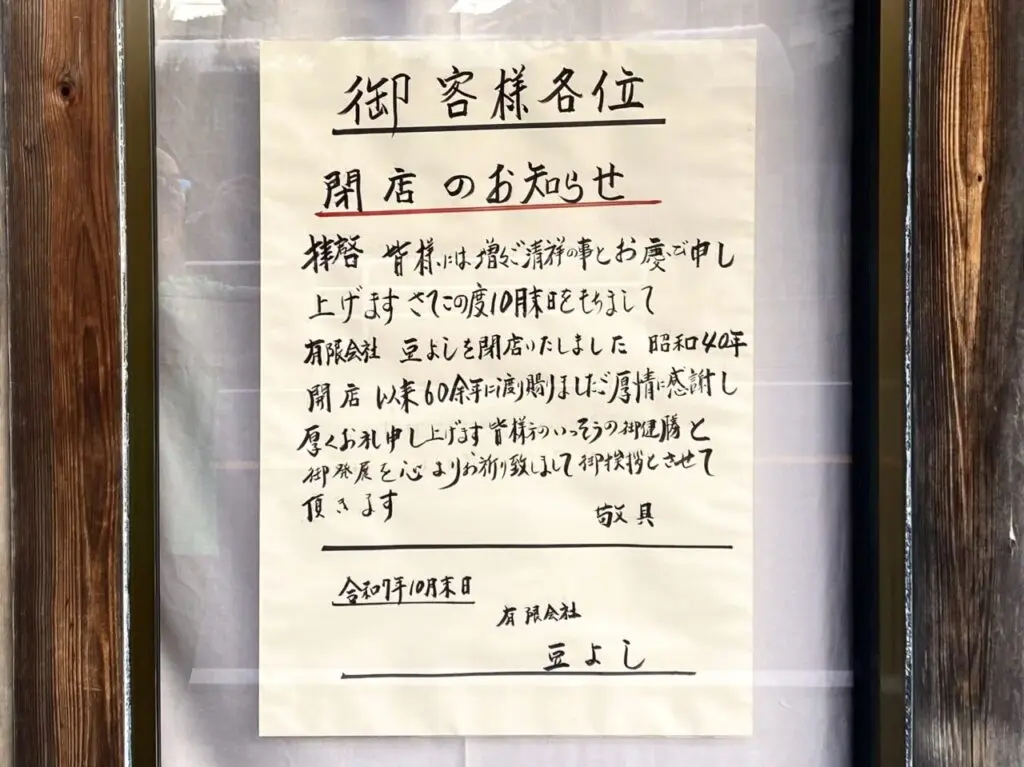 御客様各位
閉店のお知らせ
拝啓 皆様には増々ご清祥の事とお慶び申し
上げます さてこの度10月末日をもちまして
有限会社 豆よしを閉店いたしました 昭和40年
開店 以来60余年に渡り賜りましたご厚情に感謝し
厚くお礼申し上げます 皆様方のいっそうの御健勝と
御発展を心よりお祈り致しまして御挨拶とさせて
頂きます 敬具
令和7年10月末日
有限会社
豆よし